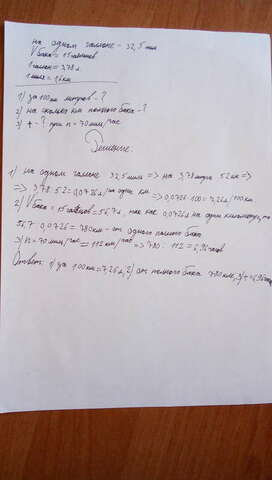 на одном галлоне - 32,5 мили
V бака = 15 галлонов
1 галлон = 3,78 л.
1 миля = 1,6 км
1) за 100 км литров - ?
2) на сколько км полного бака - ?
3) t - ? при n = 70 миль/час
Решение:
1) на одном галлоне 32,5 мили => на 3,78 литра 52 км =>
=> 3,78 : 52 = 0,0726 л/на один км => 0,0726 · 100 = 7,26 л/100 км
2) V бака = 15 галлонов = 56,7 л, так как 0,0726 л на один километр, то
56,7 : 0,0726 = 780 км - от одного полного бака
3) n = 70 миль/час = 112 км/час => 780 : 112 = 6,96 часов
Ответ: 1) за 100 км = 7,26 л, 2) от полного бака 780 км, 3) t = 6,96 часов